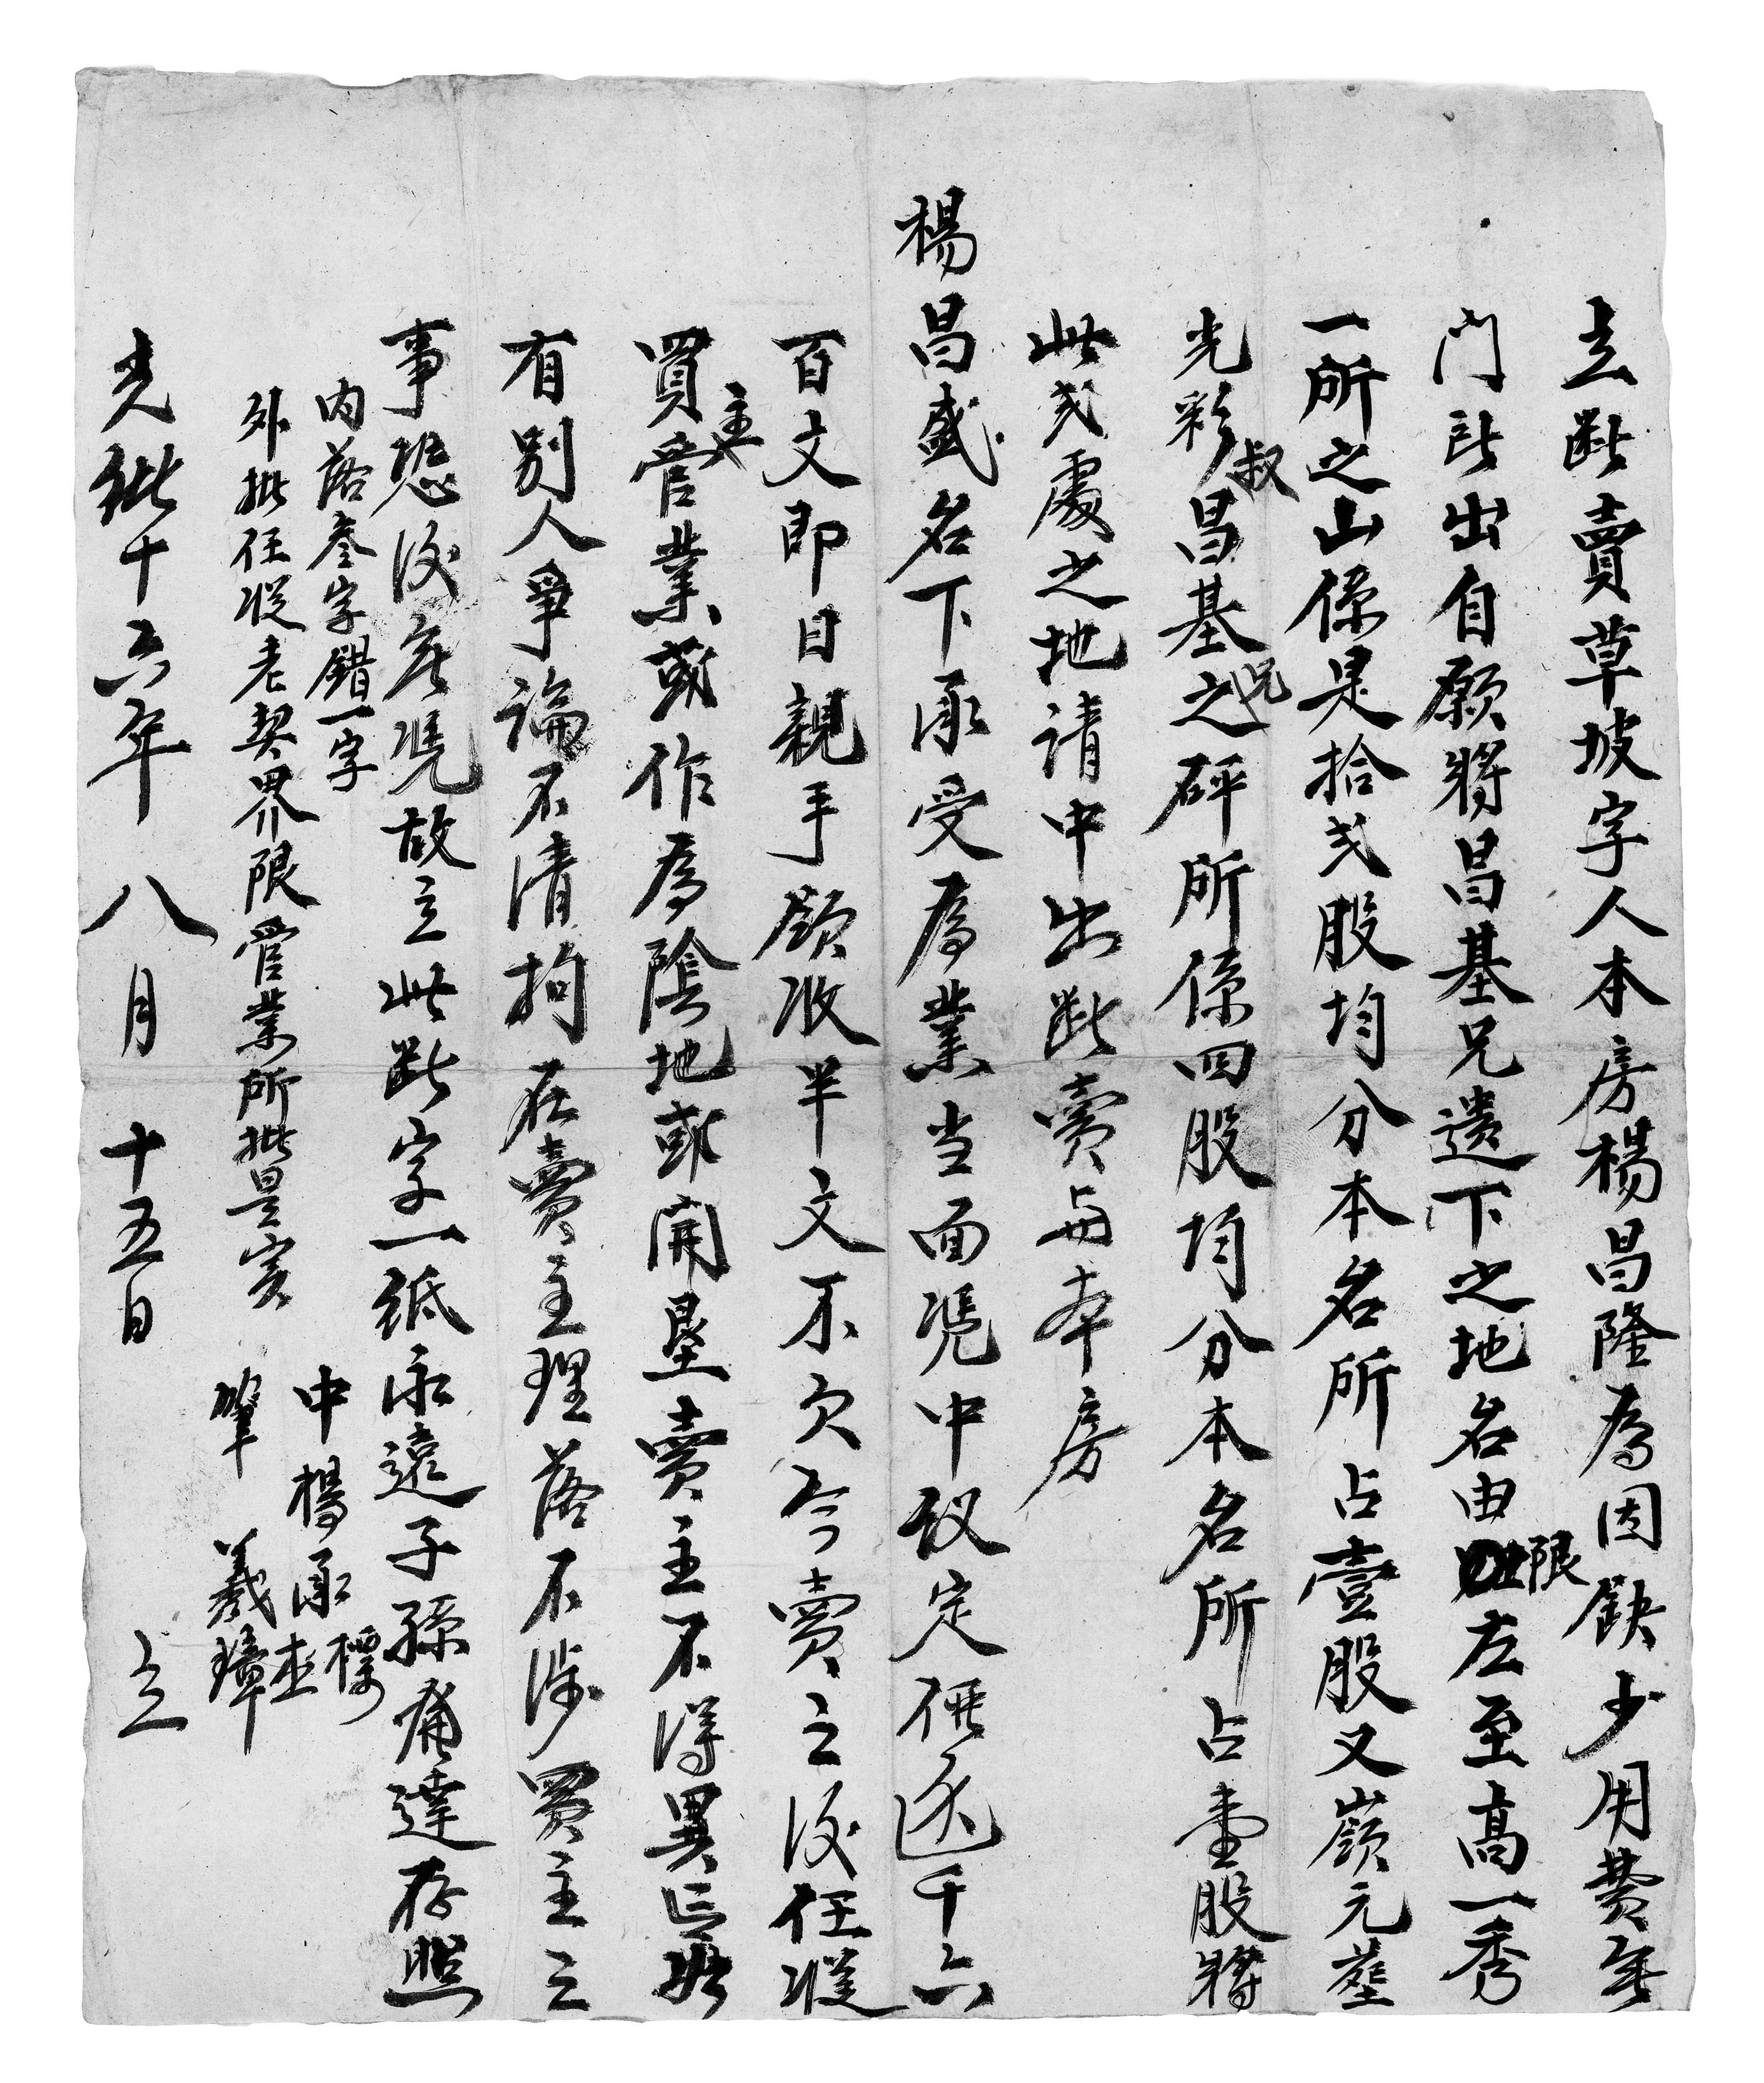 立斷賣草坡字人本房楊昌隆為因缺少用費無
門訖出自願將昌基兄遺下之地名由限左至高一秀
一所之山係是拾弍股均分本名所占壹股又嶺元塟
光彩叔昌基兄之砰所係四股均分本名所占壹股將
此弍處之地請中出斷賣与本房
楊昌盛名下承受為業当面凭中议定價伍千六
百文即日親手領收半文不欠今賣之後任從
買主管業或作為陰地或開墾賣主不得異言如
有別人爭論不清拘在賣主理落不涉買主之
事恐後無凴故立此斷字一紙永遠子孫發達存照
内落叁字錯一字
外批任從老契界限管業所批是实
中楊承標
杢
筆 羲璋
光緒十六年八月十五日 立